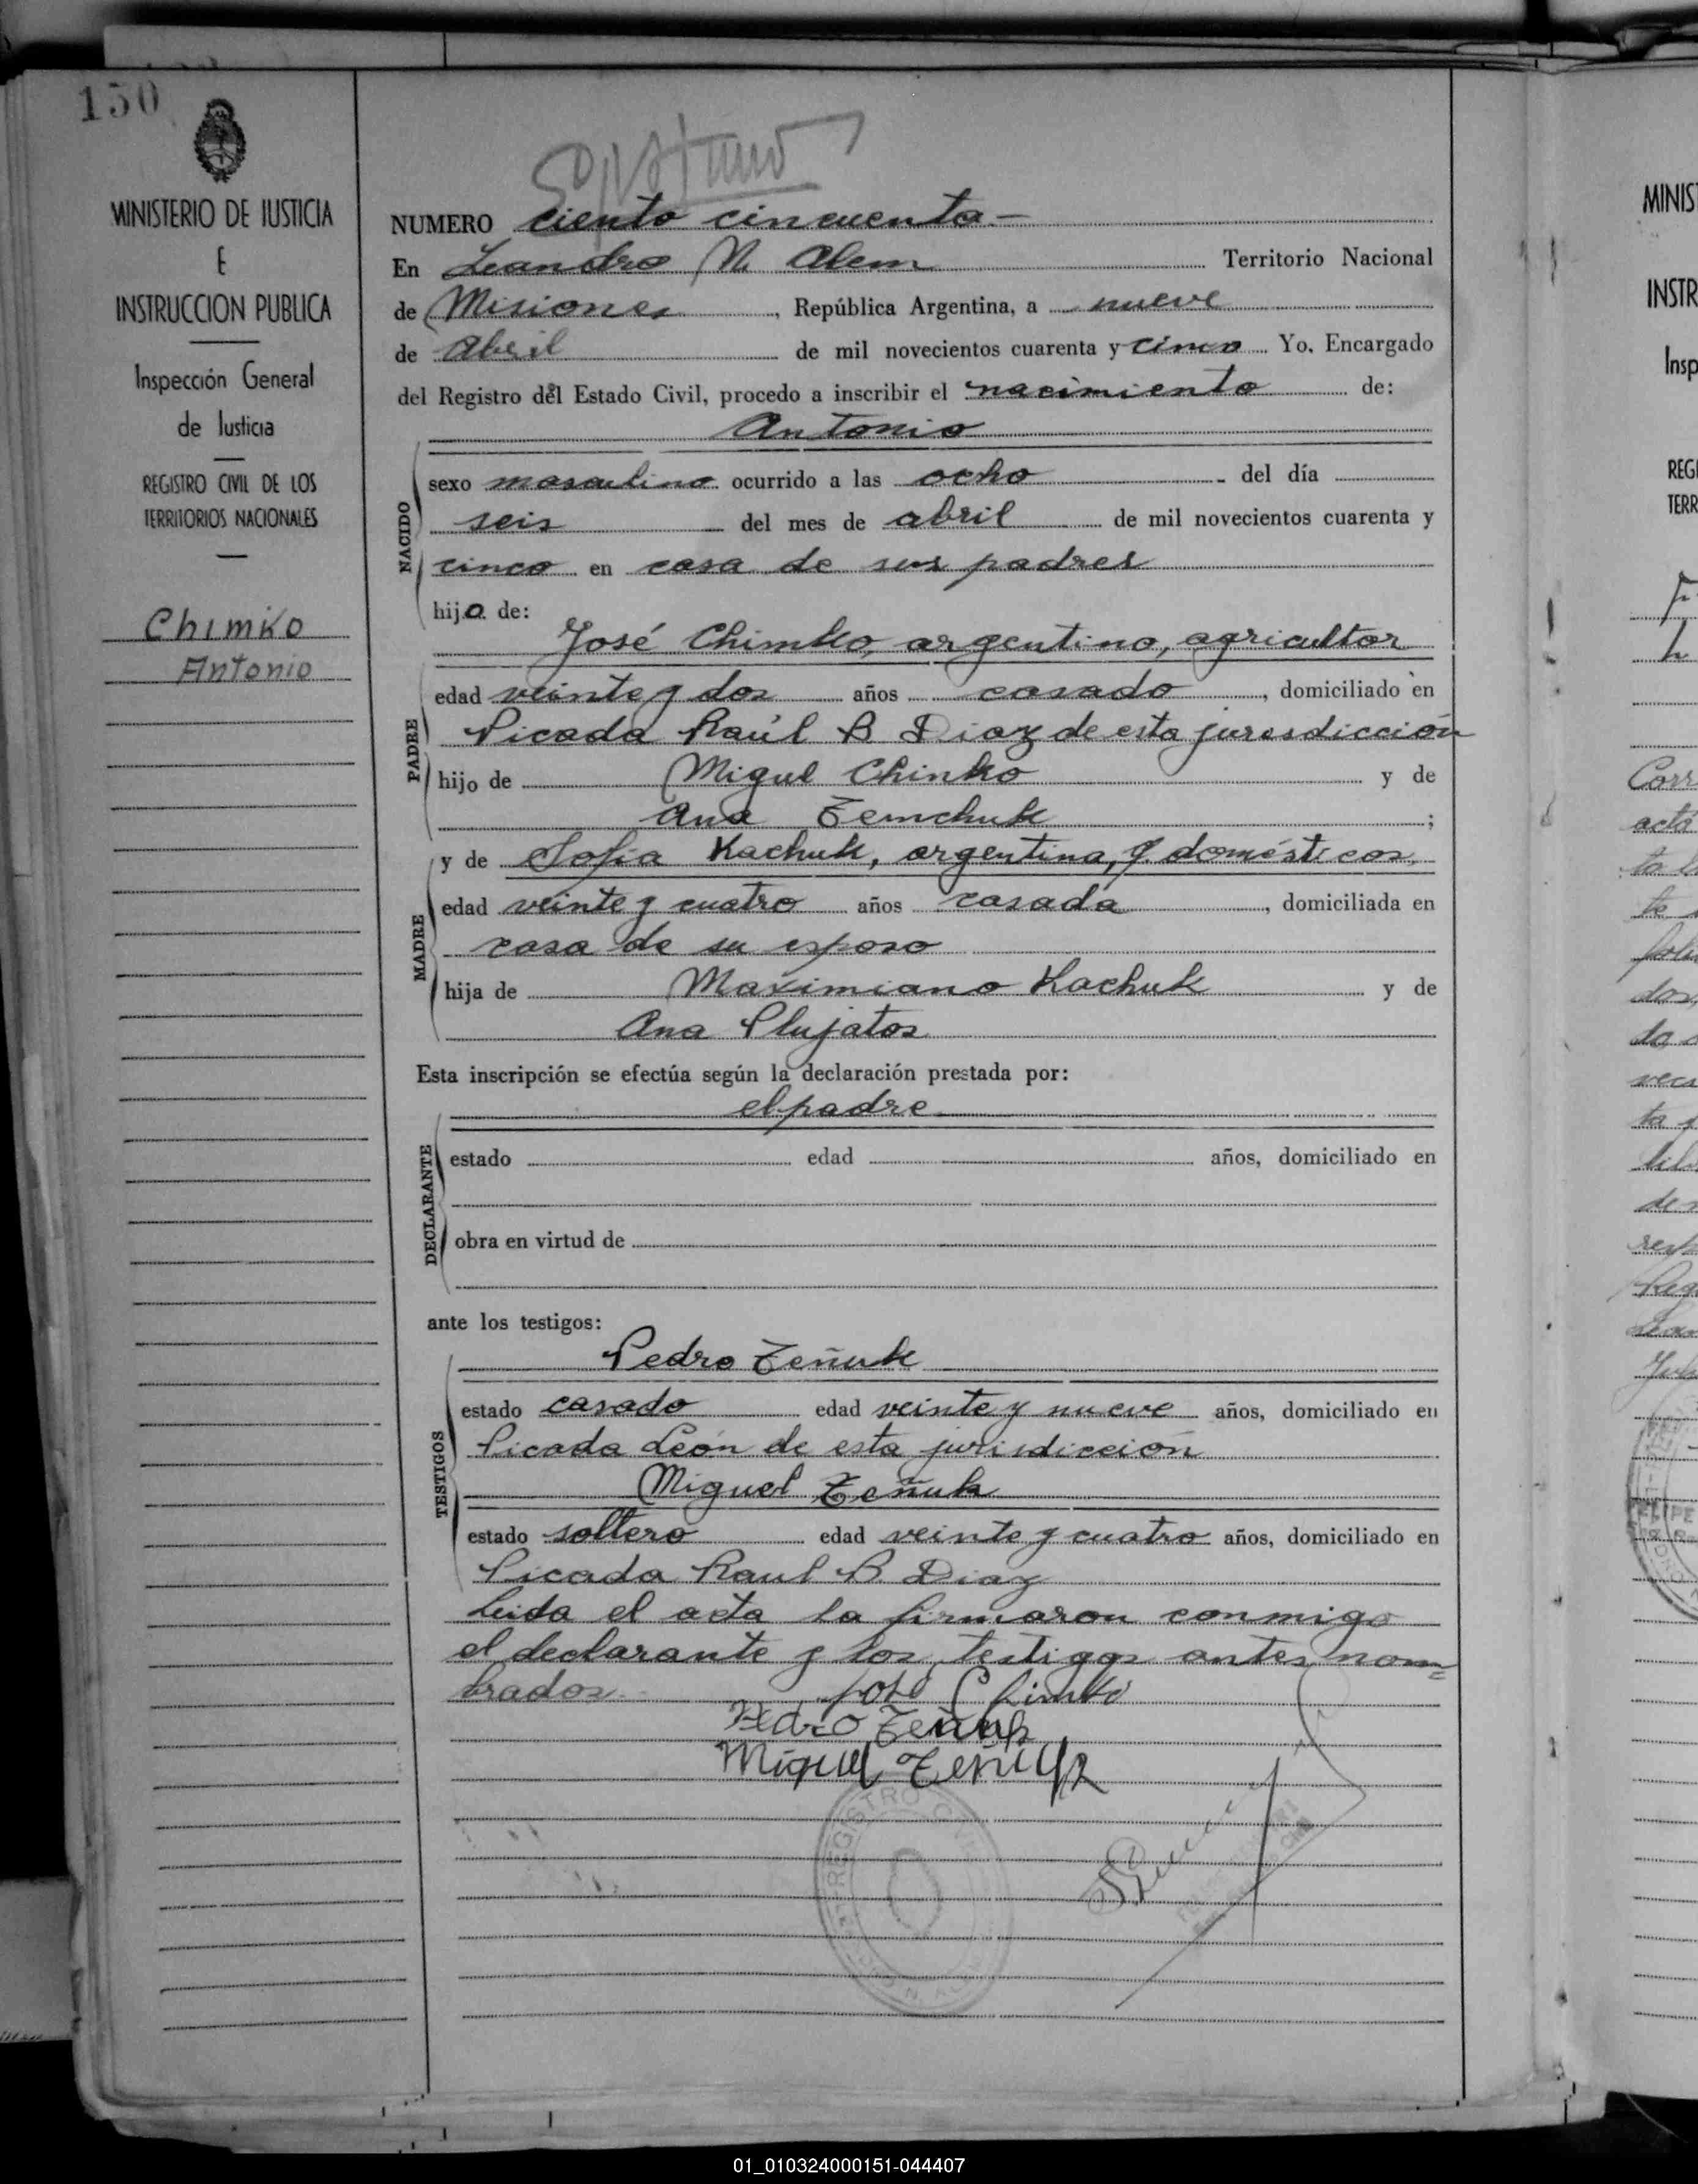 150
MINISTERIO DE JUSTICIA
E
INSTRUCCION PUBLICA
Inspección General
de Justicia
REGISTRO CIVIL DE LOS
TERRITORIOS NACIONALES
Chimko
Antonio
NUMERO ciento cincuenta-
En Leandro N. Alem Territorio Nacional
de Misiones, República Argentina, a nueve
de Abril de mil novecientos cuarenta y cinco Yo, Encargado
del Registro del Estado Civil, procedo a inscribir el nacimiento de:
Antonio
NACIDO
sexo masculino ocurrido a las ocho del día
seis del mes de abril de mil novecientos cuarenta y
cinco en casa de sus padres
hijo de:
José Chimko, argentino, agricultor
PADRE
edad veinte y dos años casado, domiciliado en
Picada Raúl B Diaz de esta jurisdicción
hijo de Migul Chinko y de
Ana Zemchuk;
MADRE
y de Sofia Kachuk, argentina, q. domésticos
edad veinte y cuatro años casada, domiciliada en
casa de su esposo
hija de Maximiano Kachuk y de
Ana Plujatos
Esta inscripción se efectúa según la declaración prestada por:
el padre
DECLARANTE
estado edad años, domiciliado en
obra en virtud de
ante los testigos:
TESTIGOS
Pedro Zeñuk
estado casado edad veinte y nueve años, domiciliado en
Picada León de esta jurisdicción
Miguel Zeñuk
estado soltero edad veinte y cuatro años, domiciliado en
Picada Raul B. Diaz
Leida el acta la firmaron conmigo
el declarante y los testigos antes nom=
brados.
José Chimko
Pedro Zeñuk
Miguel Zeñuk
REGISTRO
MINIS
INSTR
Insp
REGI
TERR
Corr
acta
01_010324000151-044407